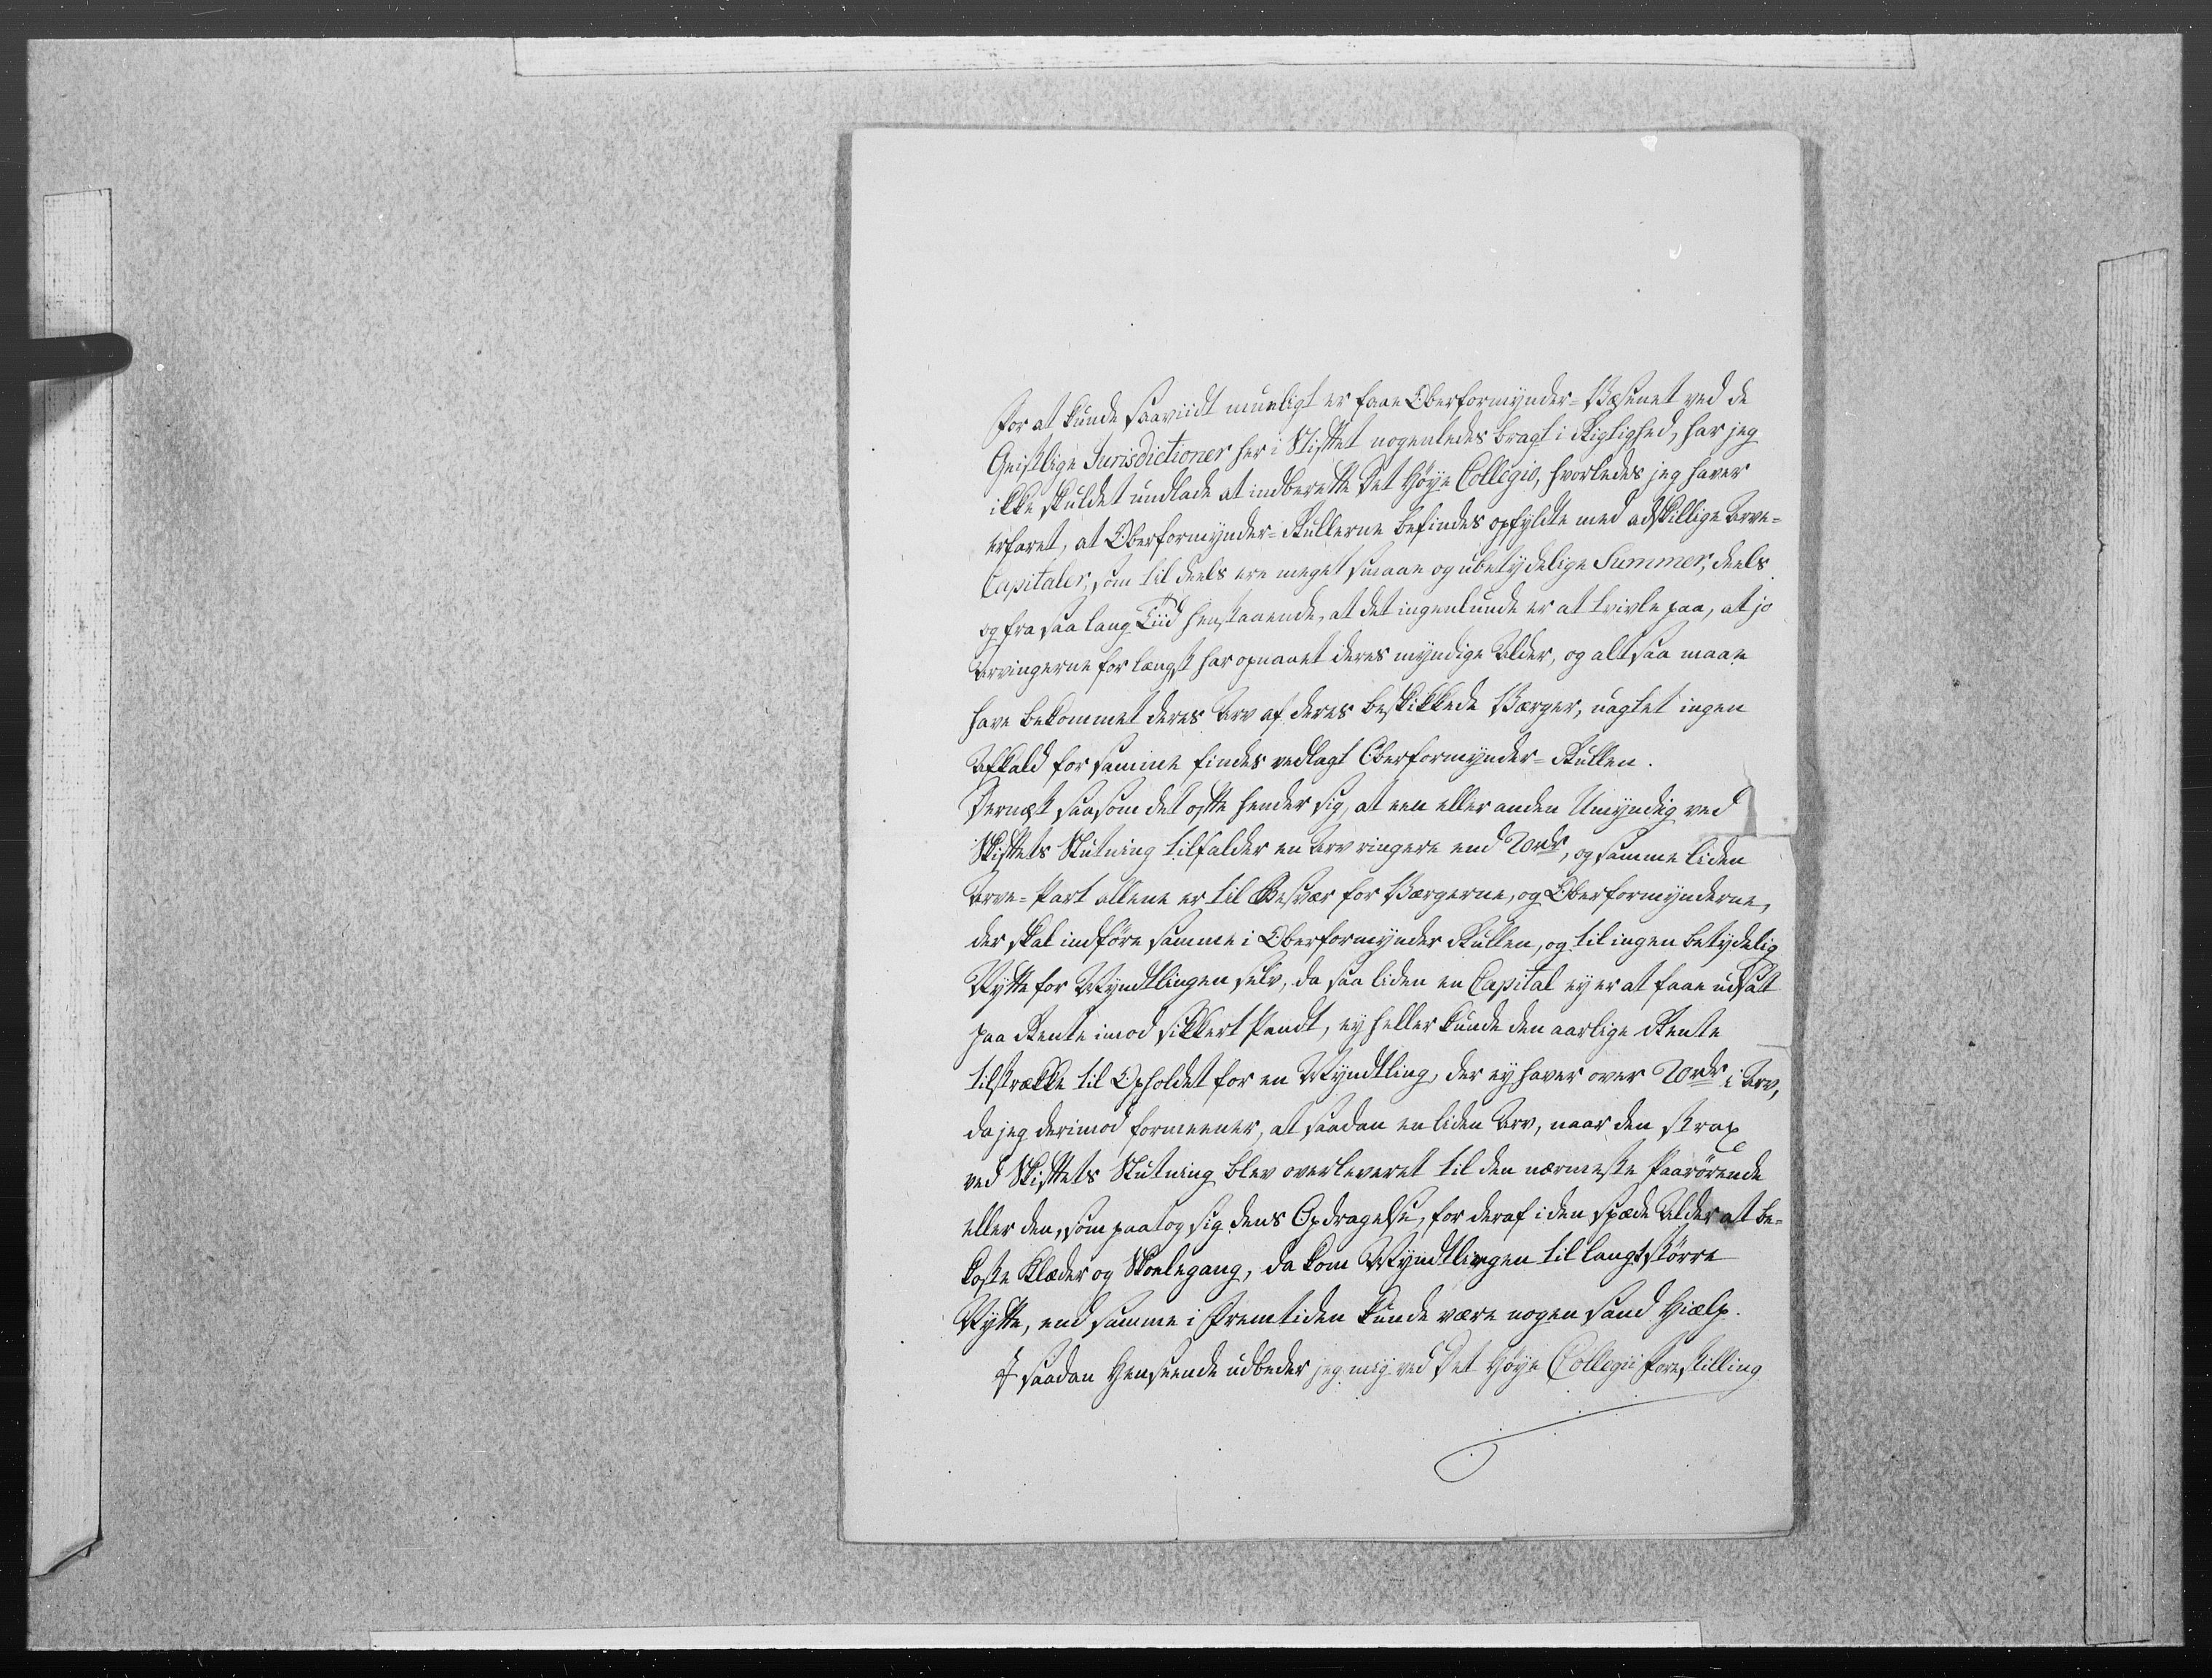 For at kunde saaviidt mueligt er faae Oberformynder-Væsenet ved de
Geistlige Jurisdictioner her i Stiftet nogenledes bragt i Rigtighed, har jeg
ikke skuldet undlade at indberette Det Høye Collegio, hvorledes jeg haver
erfaret, at Oberformynder-Rullerne befindes opfyldte med adskillige Arve-
Capitaler, som til deels ere meget smaae og ubetydelige Summer, deels
og fra saa lang Tiid henstaaende, at det ingenlunde er at tvivle paa, at jo
Arvingerne for længst har opnaaet deres myndige Alder, og altsaa maae
have bekommet deres Arv af deres beskikkede Værger, uagtet ingen
Afkald for samme findes vedlagt Oberformynder-Rullen.
Dernæst saasom det ofte hender sig, at een eller anden Umyndig ved
Skiftets Slutning tilfalder en Arv ringere end 20rdr, og samme liden
Arve-Part allene er til Besvær for Værgerne, og Oberformynderne,
der skal indføre samme i Oberformynder Rullen, og til ingen betydelig
Nytte for Myndtlingen selv, da saa liden en Capital ey er at faae udsat
paa Rente imod sikkert Pandt, ey heller kunde den aarlige Rente
tilstrække til Opholdet for en Myndtling, der ey haver over 20rdr i Arv,
da jeg derimod formeener, at saadan en liden Arv, naar den strax
ved Skiftets Slutning blev overleveret til den nærmeste Paarørende
eller den, som paatog sig dens Opdragelse, for deraf i den spæde Alder at be-
koste Klæder og Skolegang, da kom Myndtlingen til langt større
Nytte, end samme i Fremtiden kunde være nogen sand Hielp.
I saadan Henseende udbeder jeg mig ved Det Høye Collegii Forestilling